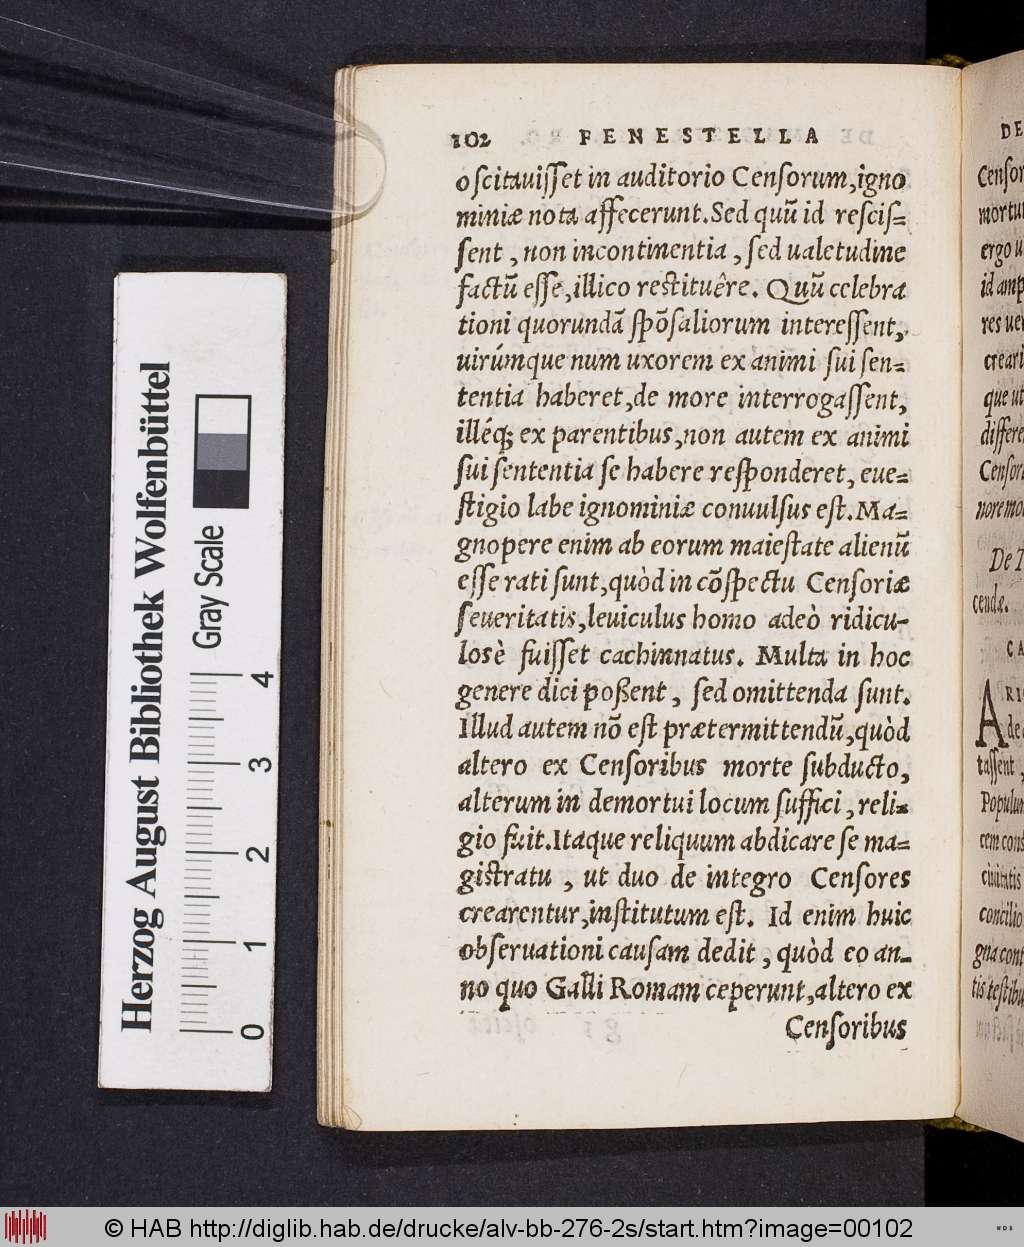 102 FENESTELLA
oſcitauiſſet in auditorio Cenſorum,igno
miniæ nota affecerunt.Sed quū id reſciſ=
ſent , non incontinentia , ſed ualetudine
factū eſſe,illico reſtituêre. Quū celebra
tioni quorundā ſpōſaliorum intereſſent,
uirúmque num uxorem ex animi ſui ſen=
tentia haberet,de more interrogaſſent,
illéq; ex parentibus,non autem ex animi
ſui ſententia ſe habere reſponderet, eue=
ſtigio labe ignominiæ conuulſus eſt.Ma=
gnopere enim ab eorum maieſtate alienū
eſſe rati ſunt,quòd in cōſpectu Cenſoriæ
ſeueritatis,leuiculus homo adeò ridicu-
losè fuiſſet cachinnatus. Multa in hoc
genere dici poßent , ſed omittenda ſunt.
Illud autem nō eſt prætermittendū,quòd
altero ex Cenſoribus morte ſubducto,
alterum in demortui locum ſuffici , reli=
gio fuit.Itaque reliquum abdicare ſe ma=
giſtratu , ut duo de integro Cenſores
crearentur,inſtitutum eſt. Id enim huic
obſeruationi cauſam dedit , quòd eo an-
no quo Galli Romam ceperunt,altero ex
Cenſoribus
DE
Cenſor
mortu
ergo u
id amp
res uer
creari
que ut
differe
Cenſor
nore mo
De
cendæ.
CA
ARI
de
taſſent
Populu
rem conſ
ciuitatis
concilio
gna cont
tis teſtibu
Herzog August Bibliothek Wolfenbüttel
Gray Scale
0 1 2 3 4
© HAB http://diglib.hab.de/drucke/alv-bb-276-2s/start.htm?image=00102